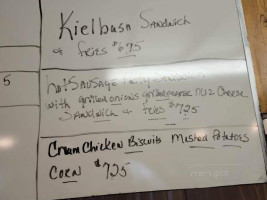 Kielbasa Sandwich
& fries $6.95
5
hot Sausage
with grilled onions grilled NUZ Cheese
Sandwich & fries $7.25
Cream Chicken Biscuits Mashed Potatoes
Corn $7.25